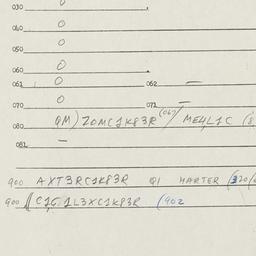 030 0
040 0
050 0
060 0
061 0 062 —
070 0 071 —
080 QM) ZOMC1K83R (067) ME4L1C (8
081 —
900 AXT3RC1K83R Q1 HARTER (320/
900 C1G1L3XC1K83R (902